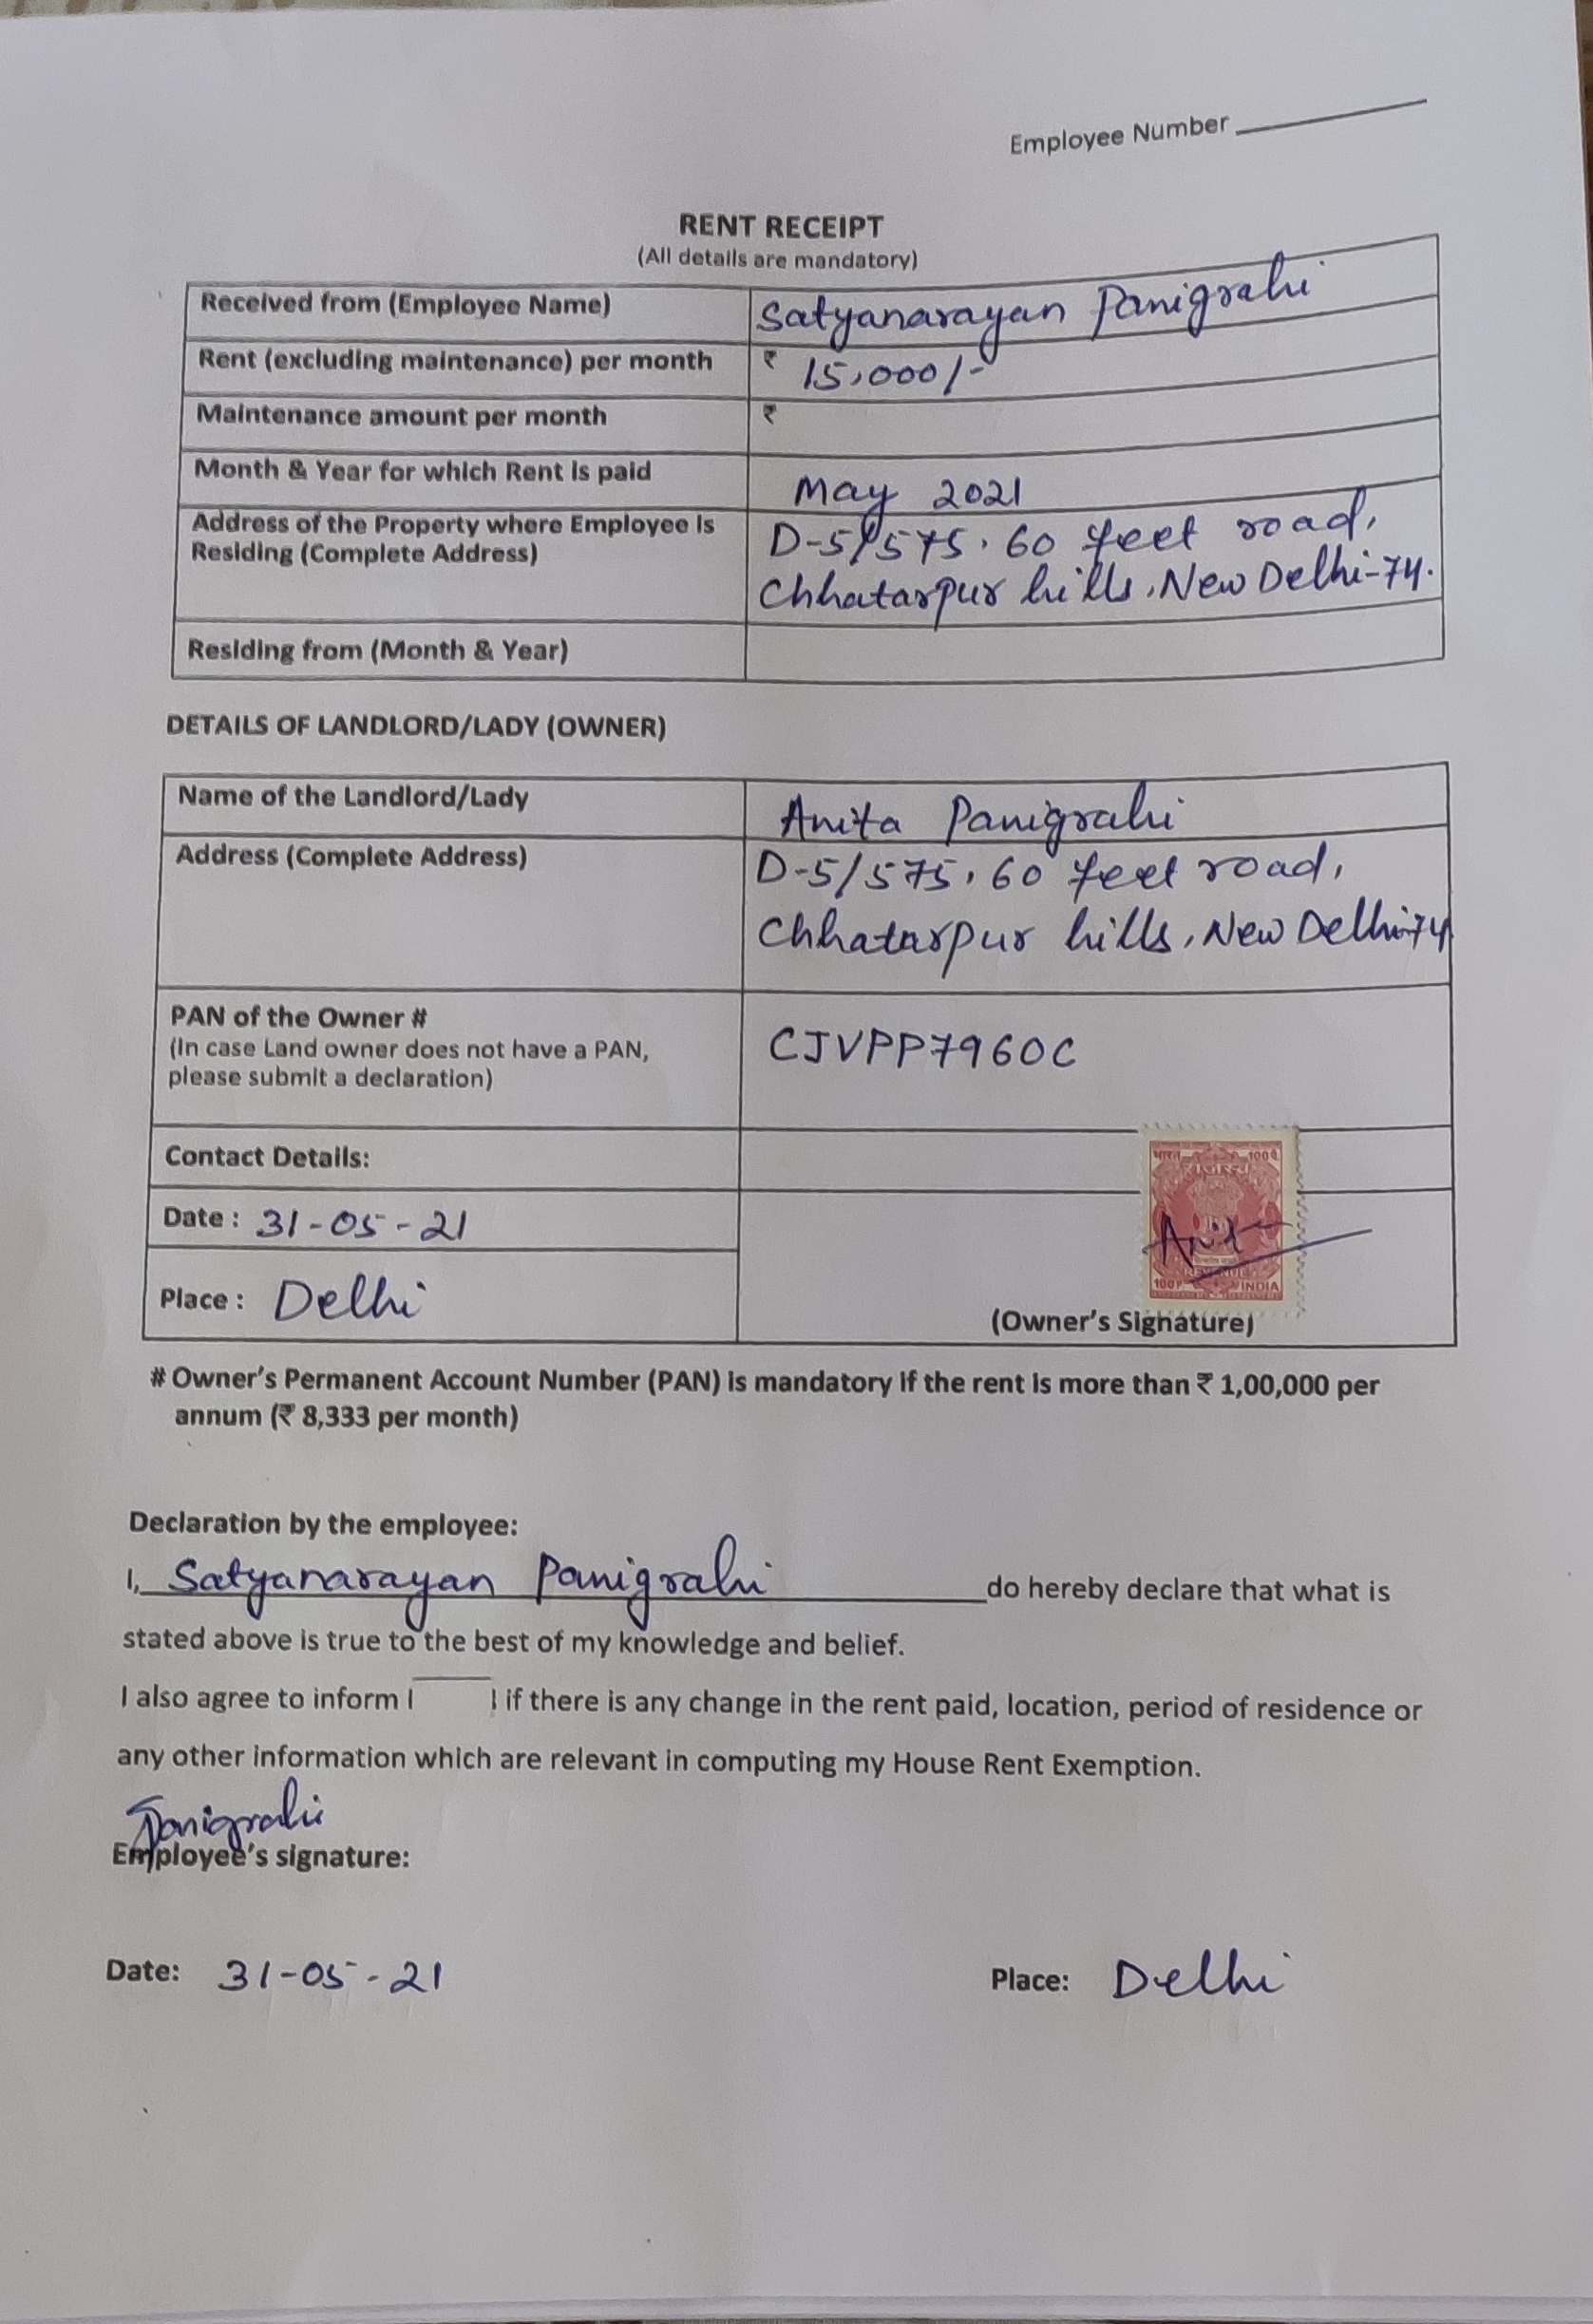 Employee Number
RENT RECEIPT
(All details are mandatory)
Received from (Employee Name) Satyanarayan Panigrahi
Rent (excluding maintenance) per month ₹ 15,000/-
Maintenance amount per month ₹
Month & Year for which Rent is paid May 2021
Address of the Property where Employee is D-5/575, 60 feet road,
Residing (Complete Address) Chhatarpur hills, New Delhi-74.
Residing from (Month & Year)
DETAILS OF LANDLORD/LADY (OWNER)
Name of the Landlord/Lady Anita Panigrahi
Address (Complete Address) D-5/575, 60 feet road,
Chhatarpur hills, New Delhi-74
PAN of the Owner #
(In case Land owner does not have a PAN, CJVPP7960C
please submit a declaration)
Contact Details:
भारत 100
राजस्व
Date : 31-05-21
Anit
Place : Delhi
REVENUE
100 INDIA
(Owner's Signature)
# Owner's Permanent Account Number (PAN) is mandatory if the rent is more than ₹ 1,00,000 per
annum (₹ 8,333 per month)
Declaration by the employee:
I, Satyanarayan Panigrahi do hereby declare that what is
stated above is true to the best of my knowledge and belief.
I also agree to inform if there is any change in the rent paid, location, period of residence or
any other information which are relevant in computing my House Rent Exemption.
Panigrahi
Employee's signature:
Date: 31-05-21 Place: Delhi